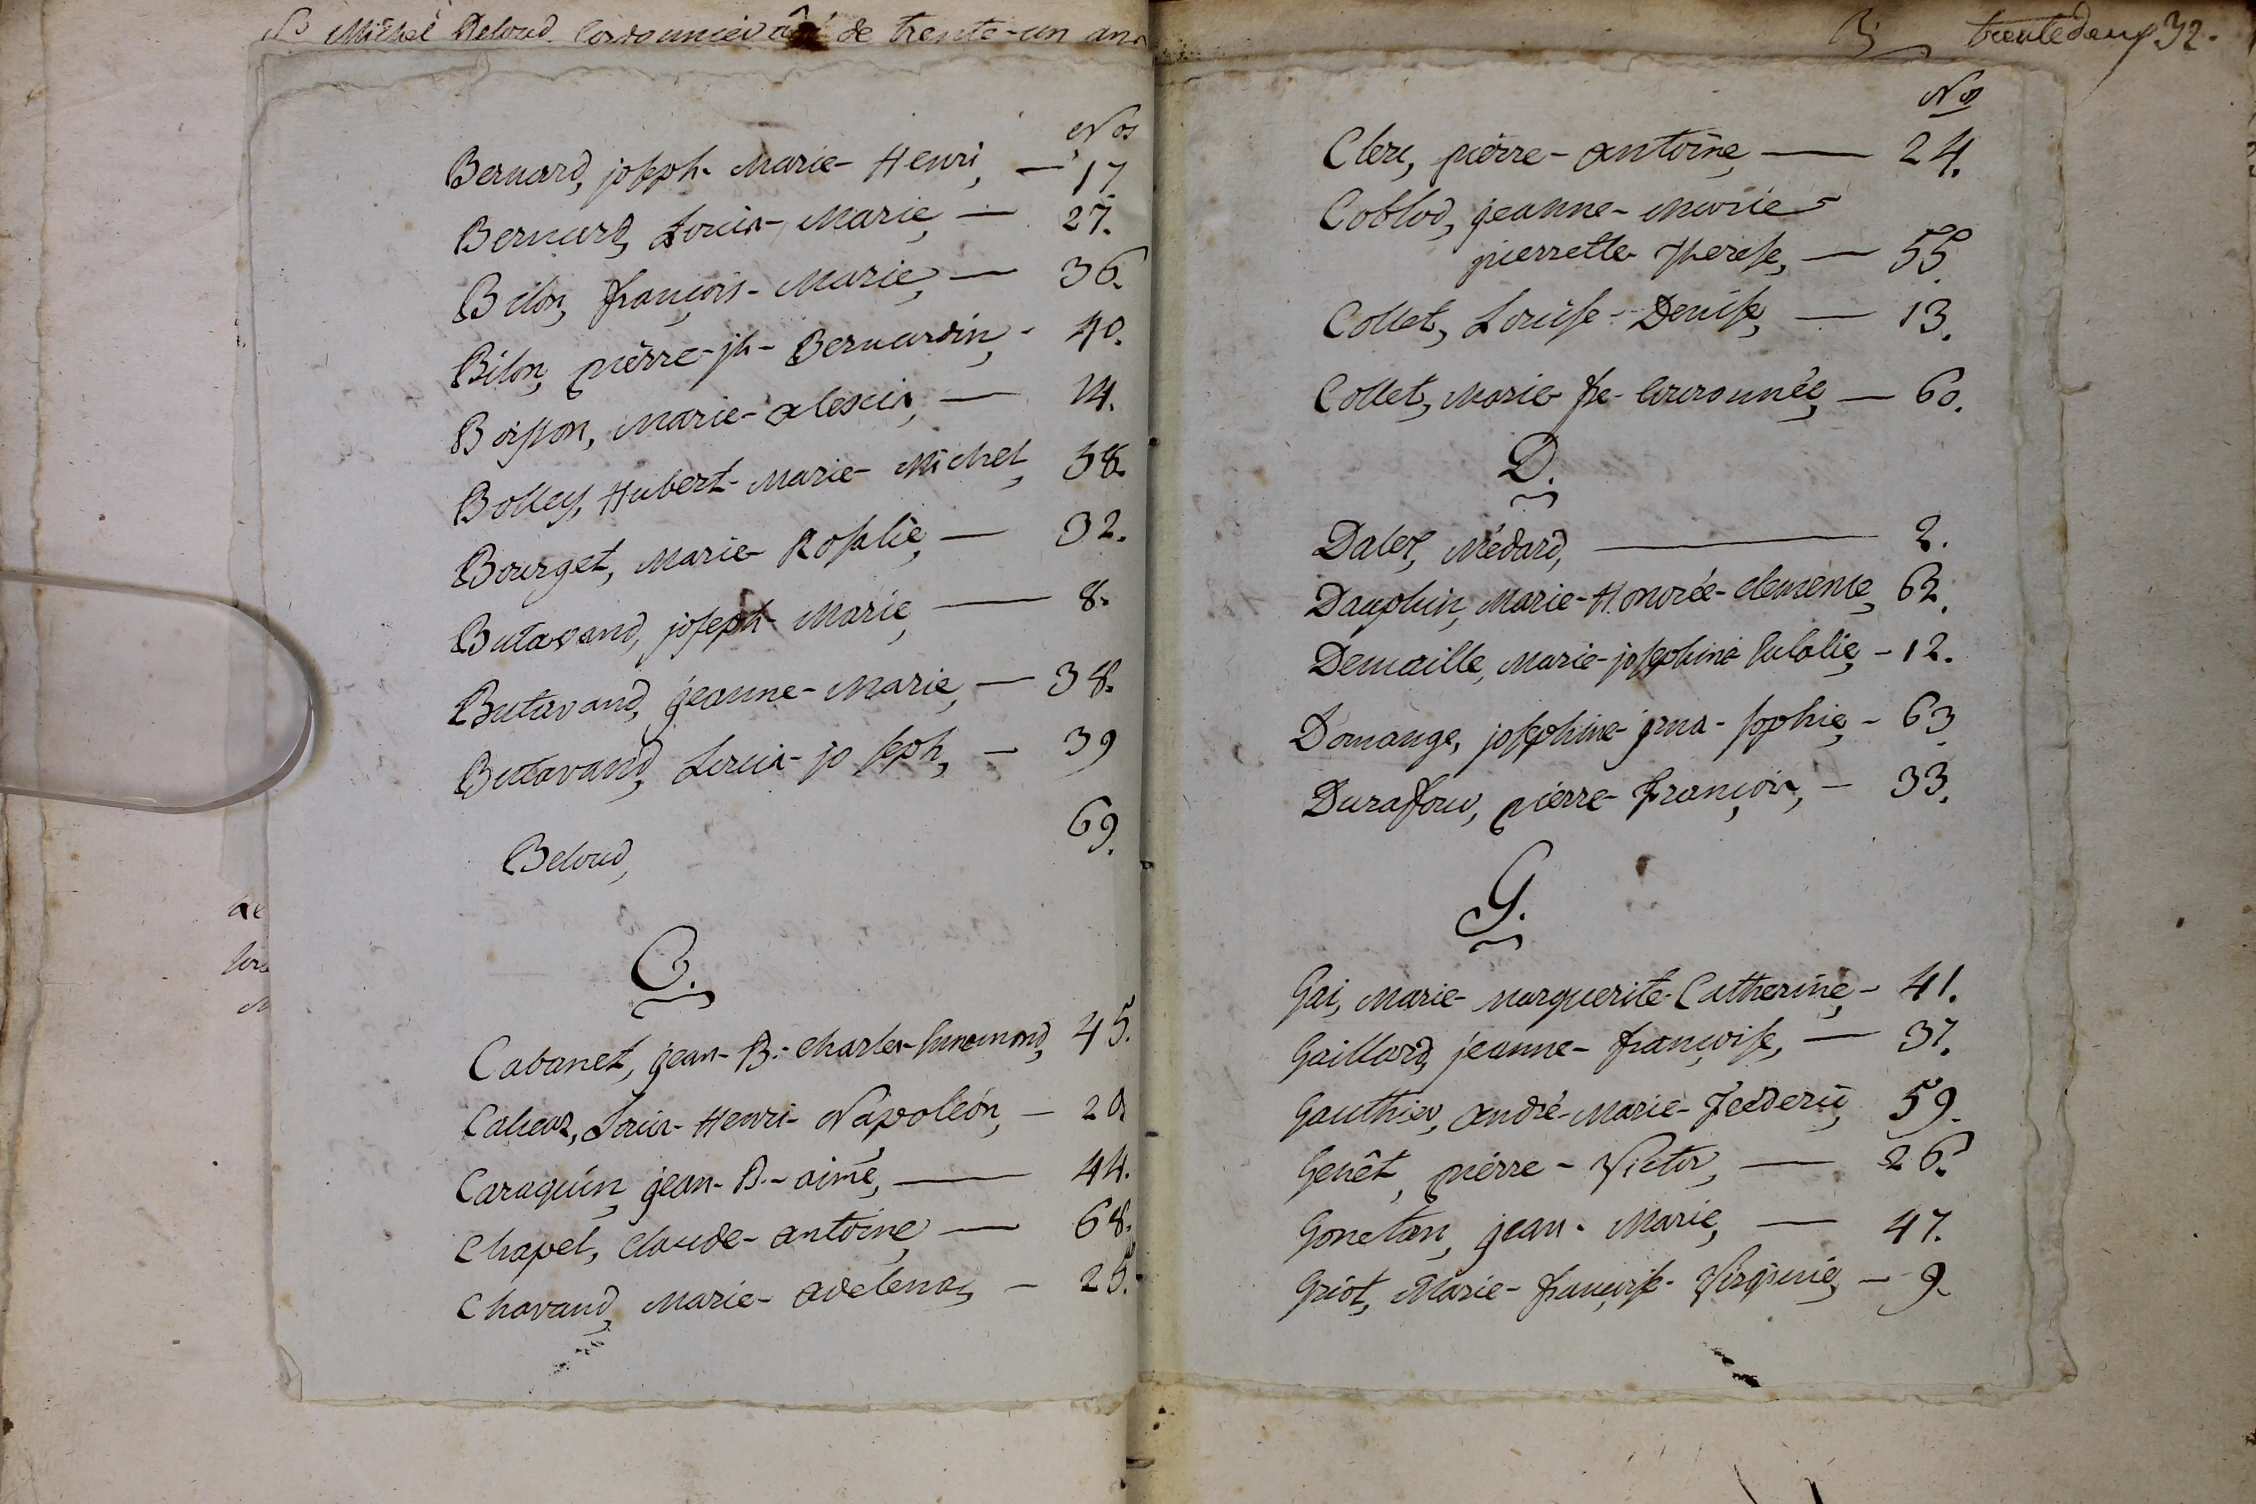 Michel Beloud Cordonnier âgé de trente-un ans
Nos
Bernard, joseph-Marie-Henri, — 17
Bernard, Louis-Marie, — 27.
Bilon, françois-Marie, — 36.
Bilon, pierre-jh-Bernardin, - 40.
Boisson, Marie-alexis, — 14.
Bolley, Hubert-Marie-Michel, 58.
Bourget, Marie-Rosalie, — 32.
Butavand, joseph-Marie, — 8.
Butavand, jeanne-Marie, — 38.
Butavand, Louis-joseph, — 39
Beloud, 69.
C.
Cabanet, jean-B.-charles-Ennemond, 45.
Louis-Henri-Napoléon, — 20
Caraquin, jean-B.-aimé, — 44.
Chapel, claude-antoine, — 68.
Chavand, Marie-adelena, — 25.
ae
trente deux 32.
Nos
Clerc, pierre-antoine, — 24.
Coblod, jeanne-Marie-
pierrette-Therese, — 55.
Collet, Louise-Denise, — 13.
Collet, Marie-fse-Couronnée, — 60.
D.
Daloz, Médard, — 2.
Dauphin, Marie-Honorée-clemence, 62.
Demaille, Marie-josephine-Eulalie, - 12.
Domange, josephine-jena-sophie, - 63.
Duraffour, pierre-françois, — 33.
G.
Gai, Marie-Marguerite-Catherine, - 41.
Gaillard, jeanne-françoise, — 37.
Gauthier, andré-Marie-féderic, 59.
Genêt, pierre-Victor, — 26.
Gonetan, jean-Marie, — 47.
Griot, Marie-françoise-Virginie, — 9.